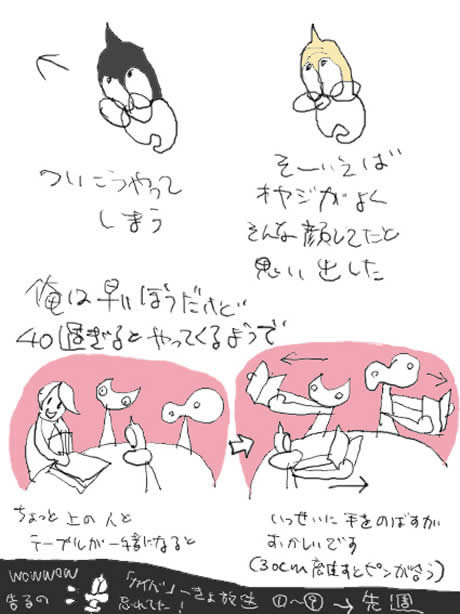 ついこうやって
しまう
そーいえば
オヤジがよく
そんな顔してたと
思い出した
俺は早いほうだけど
40過ぎるとやってくるようで
ちょっと上の人と
テーブルが一緒になると
いっせいに手をのばすが
おかしいです
(30cm離すとピンが合う)
WOWWOW
告るの
忘れてた!
「ケイバ」一きょ放送 ①〜⑧→